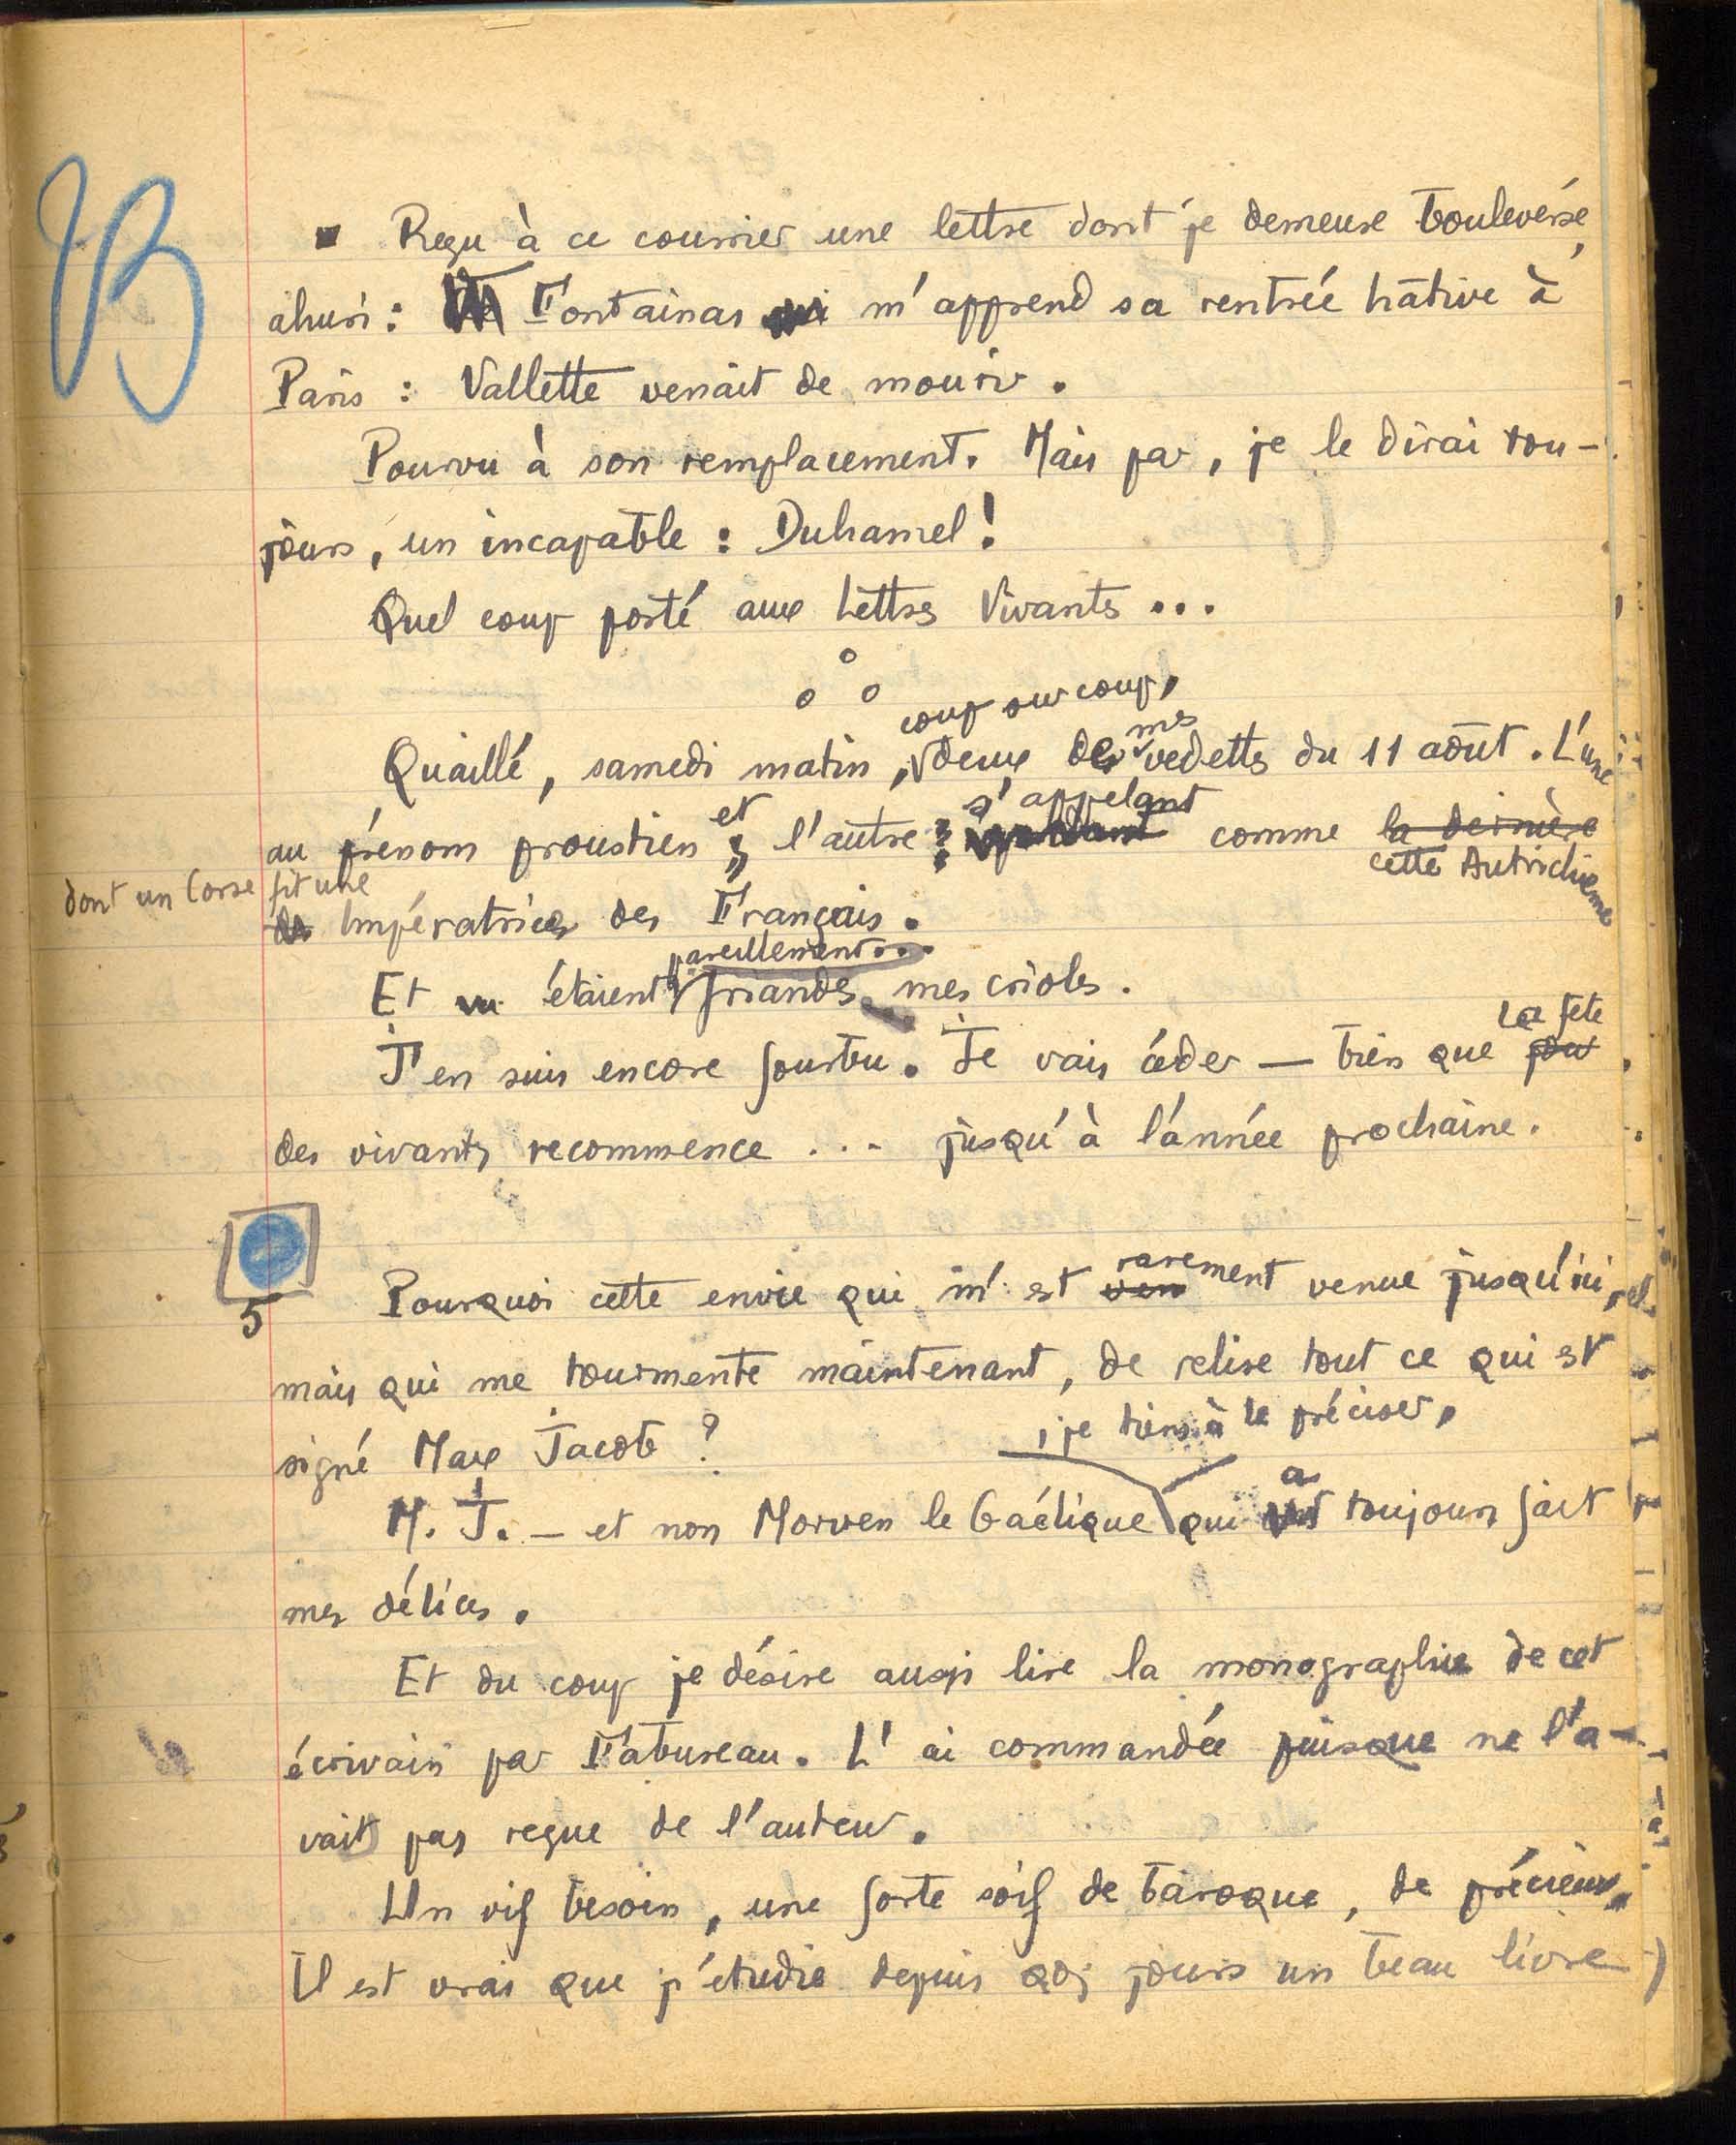 B
Reçu à ce courrier une lettre dont je demeure bouleversé,
ahuri : Fontainas m'apprend sa rentrée hâtive à
Paris : Vallette venait de mourir.
Pourvu à son remplacement. Mais par, je le dirai tou-
jours, un incapable : Duhamel !
Quel coup porté aux Lettres Vivantes ...
coup sur coup,
Quaillé, samedi matin, deux de mes vedettes du 11 août. L'une
au prénom proustien et l'autre s'appelant comme la dernière
cette Autrichienne
dont un Corse fit une
Impératrice des Français.
pareillement...
Et étaient friandes mes crioles.
J'en suis encore fourbu. Je vais céder — bien que la fête
des vivants recommence ... jusqu'à l'année prochaine.
5
Pourquoi cette envie qui m'est rarement venue jusqu'ici,
mais qui me tourmente maintenant, de relire tout ce qui est
signé Max Jacob ?
, je tiens à le préciser,
M. J. — et non Morven le Gaélique qui a toujours fait
mes délices.
Et du coup je désire aussi lire la monographie de cet
écrivain par Fabureau. L'ai commandée puisque ne l'a-
vait pas reçue de l'auteur.
Un vif besoin, une forte soif de baroque, de précieux.
Il est vrai que j'étudie depuis qqs jours un beau livre